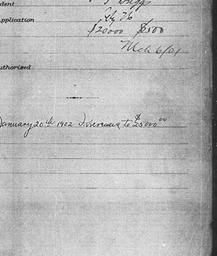 dent
pplication
$20000 $500
Mch 6/01
uthorized
January 20th 1902 Increased to $5000.00